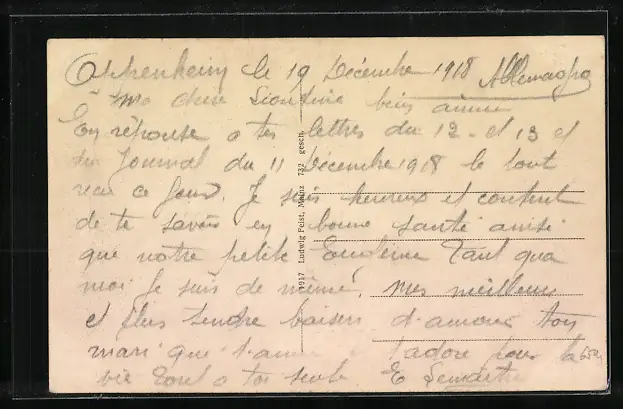 Oppenheim le 19 Décembre 1918 Allemagne
Ma chere bien aimée
En réponse a tes lettres du 12 et 13 et
du Journal du 11 Décembre 1918 le tout
recu ce jour. Je suis heureux et content
de te savoir en bonne santé ainsi
que notre petite Tant qua
moi Je suis de même. Mes meilleurs
et plus tendre baisers d'amour ton
mari que t'aime t'adore pour la
vie tout a toi seule E Lemaitre
1917 Ludwig Feist, Mainz 732 gesch.